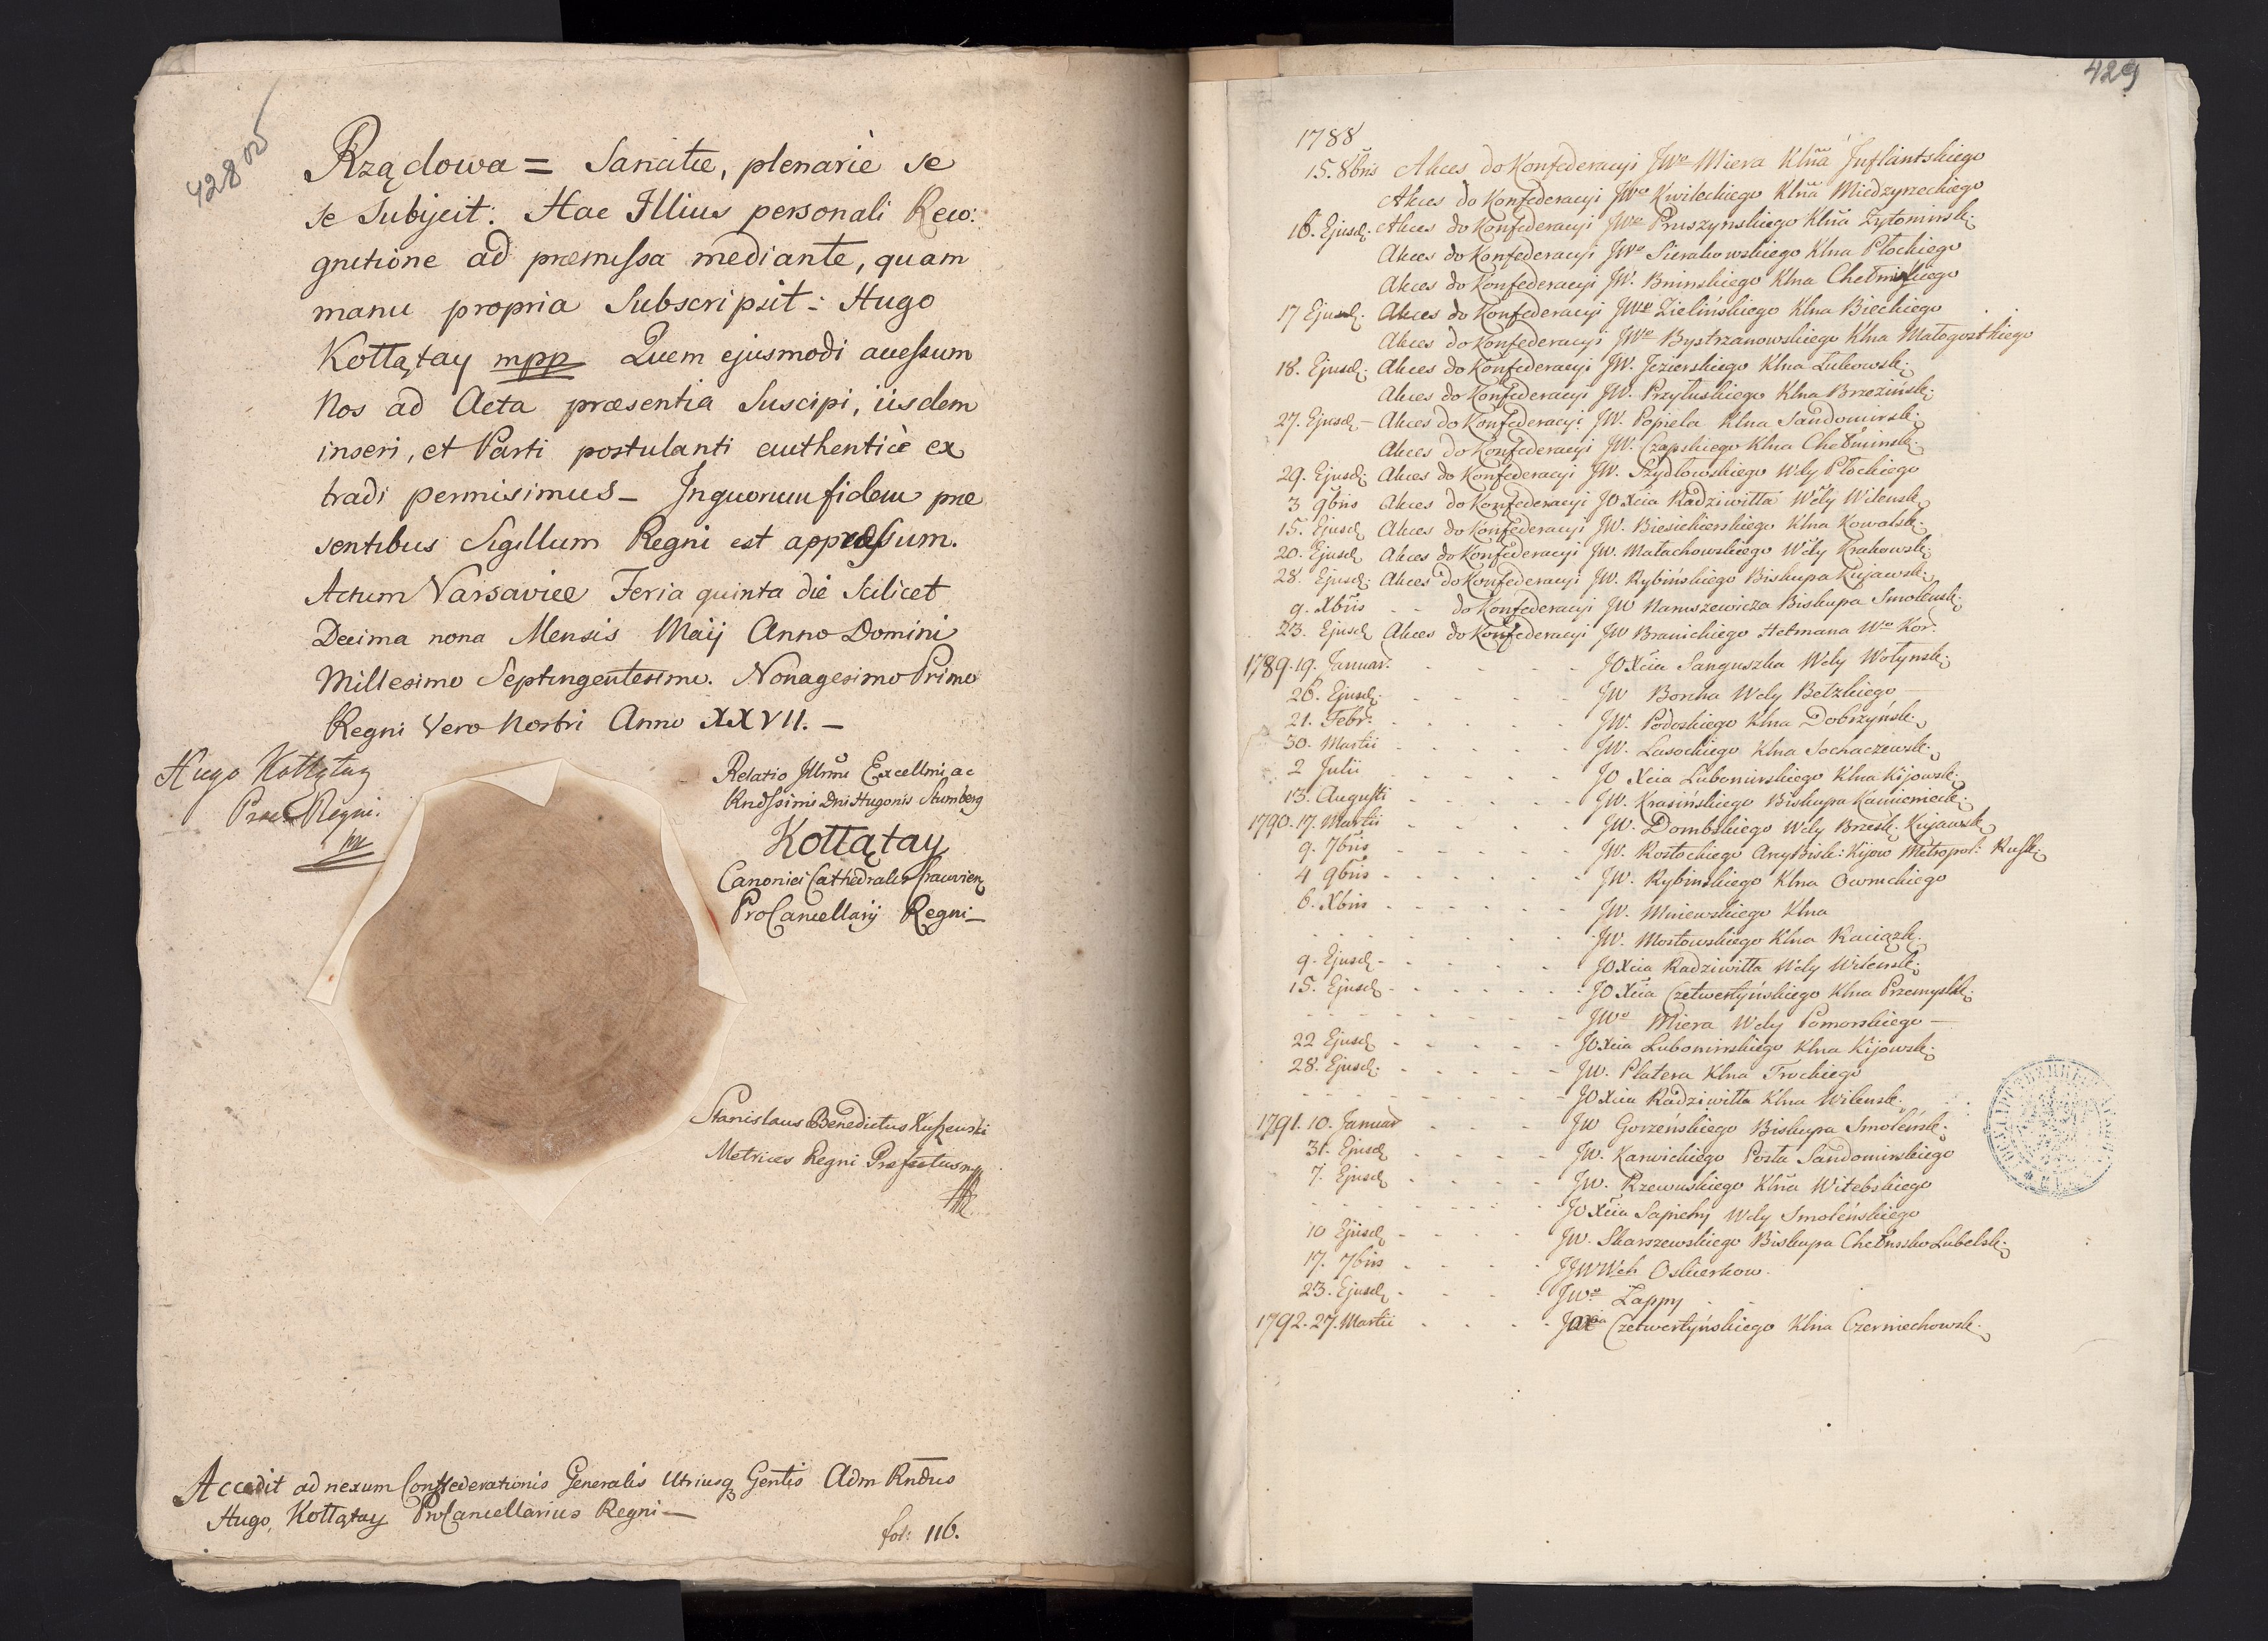 428 v
Rządowa = Sancitæ, plenariè se
se Subijcit: Hac Illius personali Reco:
gnitione ad præmissa mediante, quam
manu propria Subscripsit: Hugo
Kołłątay mpp Quem ejusmodi accessum
Nos ad Acta præsentia Suscipi, iisdem
inseri, et Parti postulanti authenticè ex
tradi permisimus_ In quorum fidem præ
sentibus Sigillum Regni est appressum.
Actum Varsaviæ Feria quinta die Scilicet
Decima nona Mensis Maij Anno Domini
Millesimo Septingentesimo Nonagesimo Primo
Regni Vero Nostri Anno XXVII. _
Hugo Kołłątay
Regni.
mp
Relatio Illmi Excellmi ac
Rndssimi Dni Hugonis Stumberg
Kołłątay
Canonici Cathedralis Cracovien
ProCancellarij Regni_
Stanislaus Benedictus
Metrices Regni Præfectus mp
Accedit ad nexum Confœderationis Generalis Utriusq Gentis Adm Rndus
Hugo, Kołłątay ProCancellarius Regni_
fol: 116.
429
1788
15. 8bris Akces do Konfederacyi JWo Miera Klna Inflantskiego
Akces do Konfederacyi JWo Kwileckiego Klna Miedzyrzeckiego
16. Ejusd: Akces do Konfederacyi JWo Pruszynskiego Klna Zytomirsk:
Akces do Konfederacyi JWo Sierakowskiego Klna Płockiego
Akces do Konfederacyi JW. Bninskiego Klna Chełmskiego
17 Ejusd: Akces do Konfederacyi JWo Zielińskiego Klna Bieckiego
Akces do Konfederacyi JWo Bystrzanowskiego Klna Małogostkiego
18. Ejusd: Akces do Konfederacyi JW. Jezierskiego Klna Łukowsk:
Akces do Konfederacyi JW. Przyłuskiego Klna Brzezińsk:
27. Ejusd – Akces do Konfederacyi JW. Popiela Klna Sandomirsk:
Akces do Konfederacyi JW. Czapskiego Klna Chełminsk:
29. Ejusd: Akces do Konfederacyi JW. Szydłowskiego Wdy Płockiego
3 9bris Akces do Konfederacyi JO Xcia Radziwiłła Wdy Wilensk:
15. Ejusd Akces do Konfederacyi JW. Biesiekierskiego Klna Kowalsk:
20. Ejusd Akces do Konfederacyi JW. Małachowskiego Wdy Krakowsk:
28. Ejusd: Akces do Konfederacyi JW. Rybińskiego Biskupa Kujawsk:
9. Xbris - - do Konfederacyi JW Naruszewicza Biskupa Smoleńsk:
23. Ejusd Akces do Konfederacyi JW Branickiego Hetmana Wo Kor:
1789. 19. Januar. - - - - JO Xcia Sanguszka Wdy Wołynsk:
26. Ejusd: - - - - JW Borcha Wdy Bełzkiego –
21. Febr: - - - - JW. Podoskiego Klna Dobrzyńsk:
30. Martii - - - - JW. Lasockiego Klna Sochaczewsk:
2 Julii - - - - JO Xcia Lubomirskiego Klna Kijowsk:
13. Augusti - - - - JW. Krasińskiego Biskupa Kamienieck:
1790. 17. Martii - - - - JW. Dombskiego Wdy Brzesk. Kujawsk
9. 7bris - - - - JW. Rostockiego ArcyBisk: Kijow Metropol: Rusk:
4 9bris - - - - JW. Rybinskiego Klna Owruckiego
6. Xbris - - - - JW. Mniewskiego Klna
- - - - JW. Mostowskiego Klna Raciązk:
9. Ejusd - - - - JO Xcia Radziwiłła Wdy Wilensk:
15. Ejusd - - - - JO Xcia Czetwertyńskiego Klna Przemyslk:
- - - - JWo Miera Wdy Pomorskiego –
22 Ejusd - - - - JO Xcia Lubomirskiego Klna Kijowsk:
28. Ejusd: - - - - JW. Platera Klna Trockiego
- - - - JO Xcia Radziwiłła Klna Wilensk:
1791. 10. Januar - - - JW Gorzeńskiego Biskupa Smoleńsk:
31. Ejusd - - - - JW. Karwickiego Posła Sandomirskiego
7. Ejusd - - - - JW. Rzewuskiego Klna Witebskiego
- - - - JO Xcia Sapiehy Wdy Smoleńskiego
10 Ejusd - - - - JW. Skarszewskiego Biskupa Chełmsko Lubelsk:
17. 7bris - - - - JJWWch Oskierkow.
23. Ejusd - - - - JWo Zappy
1792. 27. Martii - - - - Czetwertyńskiego Klna Czerniechowsk: